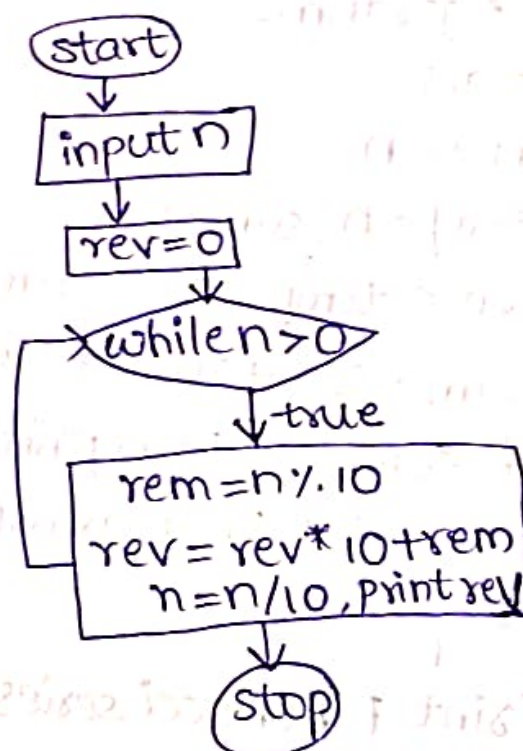 start
input n
rev=0
while n>0
true
rem=n%10
rev=rev*10+rem
n=n/10, print rev
stop